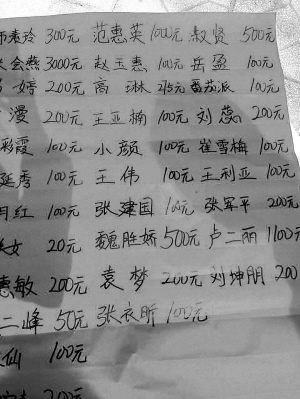 素玲 300元 范惠英 1000元 叔贤 500元
会燕 3000元 赵玉惠 100元 岳盈 100元
婷 200元 高琳 215元 番茄派 100元
漫 200元 王亚楠 100元 刘蕊 200元
彩霞 100元 小颜 100元 崔雪梅 100元
延秀 100元 王伟 100元 王利亚 100元
月红 100元 张建国 100元 张军平 200元
女 20元 魏胜娇 500元 卢二丽 1100元
惠敏 200元 袁梦 200元 刘坤朋 200
二峰 50元 张衣昕 100元
仙 100元
200元